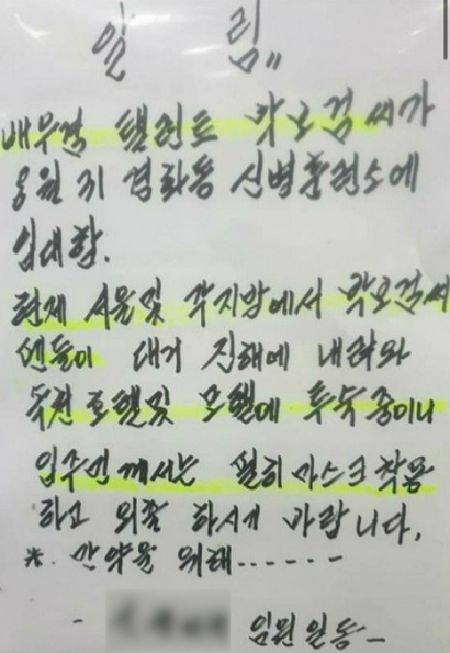 알 림"
배우겸 탤런트 박보검씨가
8월 31 경화동 신병훈련소에
입대함.
현재 서울및 각지방에서 박보검씨
팬들이 대거 진해에 내려와
속천 호텔및 모텔에 투숙중이니
입주민께서는 필히 마스크 착용
하고 외출 하시게 바랍니다.
※. 만약을 위해......-
- 임원일동-